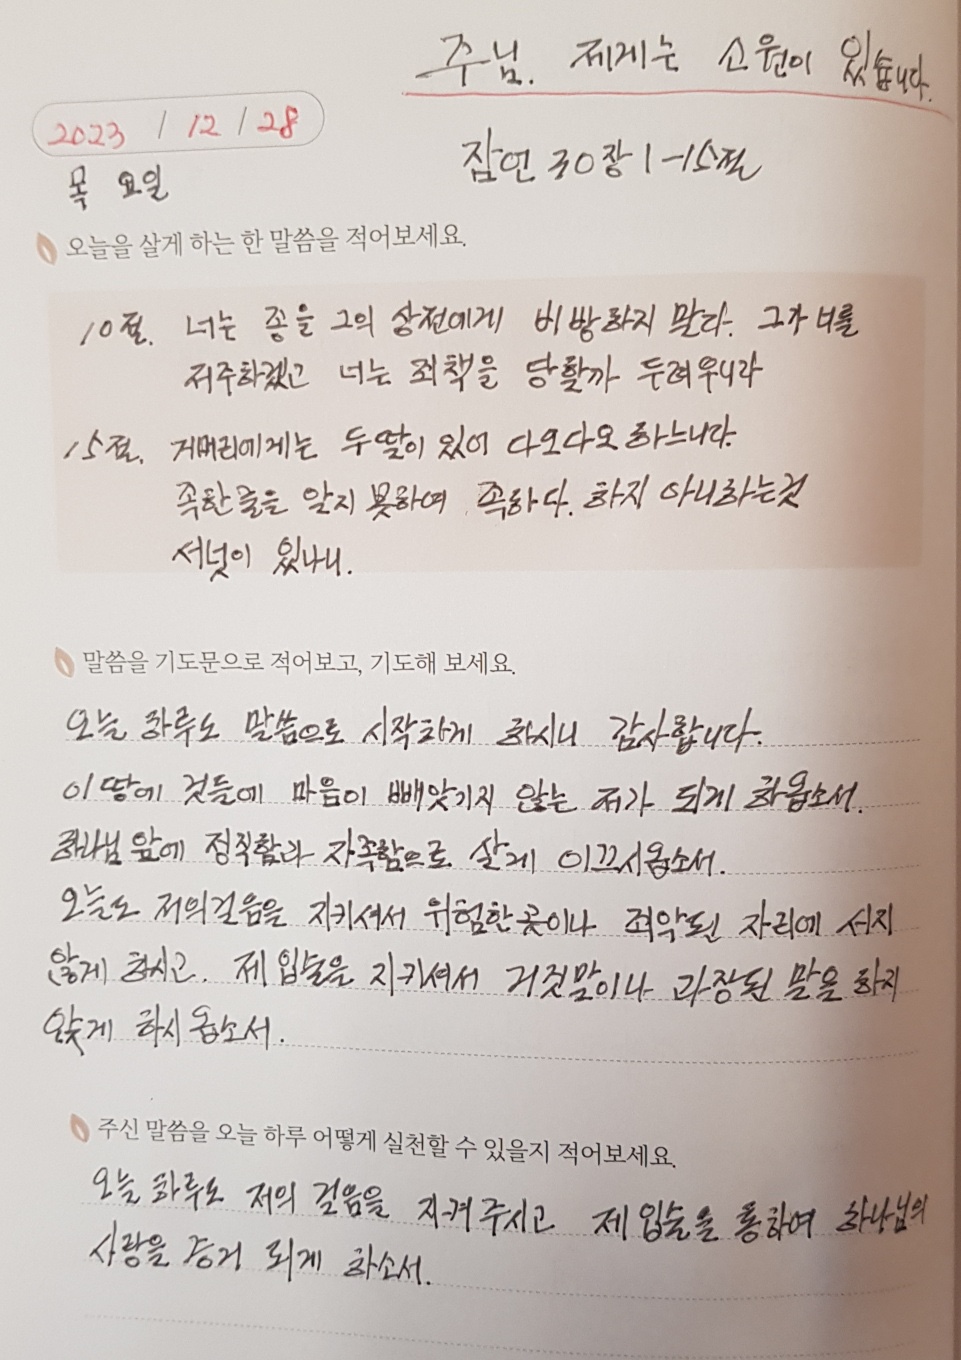 주님. 제게는 소원이 있습니다.
2023 / 12 / 28
잠언 30장 1-15절
목요일
오늘을 살게 하는 한 말씀을 적어보세요.
10절. 너는 종을 그의 상전에게 비방하지 말라. 그가 너를
저주하겠고 너는 죄책을 당할까 두려우니라
15절. 거머리에게는 두 딸이 있어 다오다오 하느니라.
족한줄을 알지 못하여 족하다. 하지 아니하는것
서넛이 있나니.
말씀을 기도문으로 적어보고, 기도해 보세요.
오늘 하루도 말씀으로 시작하게 하시니 감사합니다.
이 땅에 것들에 마음이 빼앗기지 않는 저가 되게 하옵소서.
하나님 앞에 정직함과 자족함으로 살게 이끄시옵소서.
오늘도 저의걸음을 지키셔서 위험한 곳이나 죄악된 자리에 서지
않게 하시고. 제 입술을 지키셔서 거짓말이나 과장된 말을 하지
않게 하시옵소서.
주신 말씀을 오늘 하루 어떻게 실천할 수 있을지 적어보세요.
오늘 하루도 저의 걸음을 지켜주시고 제 입술을 통하여 하나님의
사랑을 증거 되게 하소서.